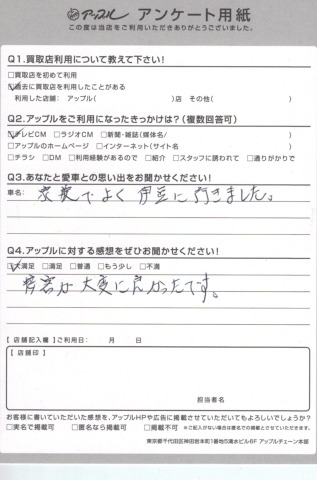 アップル アンケート用紙
この度は当店をご利用いただきありがとうございました。
Q1.買取店利用について教えて下さい!
□買取店を初めて利用
☑過去に買取店を利用したことがある
利用した店舗: アップル( )店 その他( )
Q2.アップルをご利用になったきっかけは?(複数回答可)
☑テレビCM □ラジオCM □新聞・雑誌(媒体名/ )
□アップルのホームページ □インターネット(サイト名 )
□チラシ □DM □利用経験があるので □紹介 □スタッフに誘われて □通りがかりで
Q3.あなたと愛車との思い出をお聞かせください!
車名:
家族でよく伊豆に行きました。
Q4.アップルに対する感想をぜひお聞かせください!
☑大満足 □満足 □普通 □もう少し □不満
が大変に良かったです。
【 店舗記入欄 】ご利用日: 月 日
【店舗印】
担当者名
お客様に書いていただいた感想を、アップルHPや広告に掲載させていただいてもよろしいでしょうか?
□実名で掲載可 □匿名なら掲載可 □掲載不可 ※ご記入がない場合は匿名での掲載とさせていただきます。
東京都千代田区神田岩本町1番地5清水ビル6F アップルチェーン本部